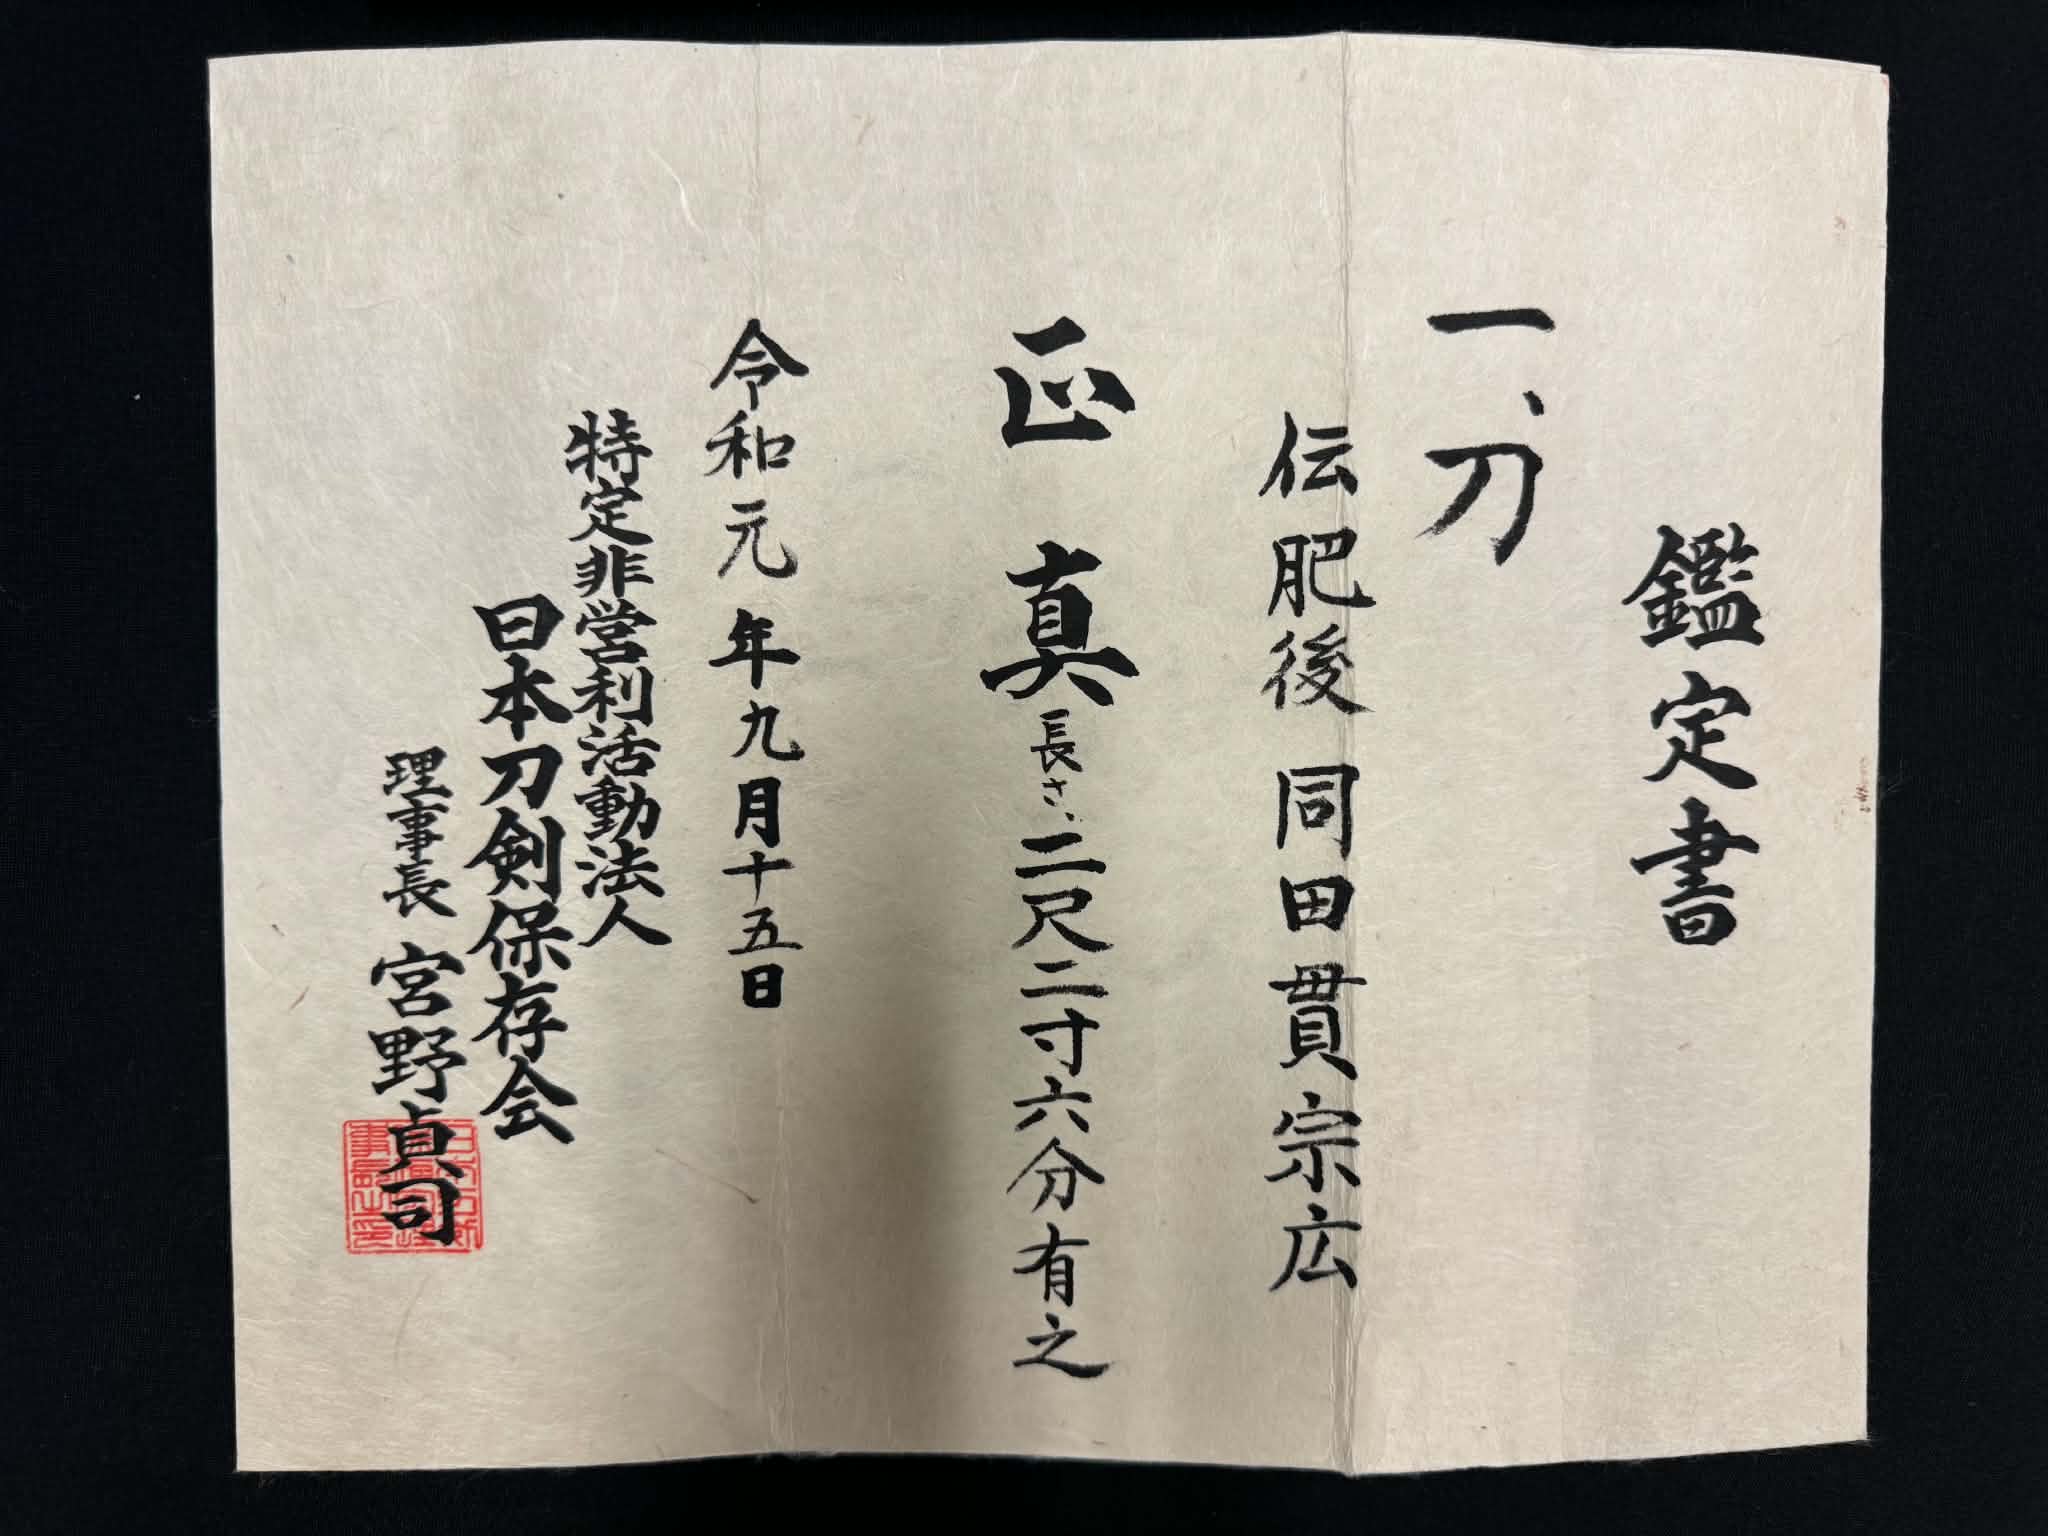 鑑定書
一、刀
伝肥後同田貫宗広
正真 長さ、二尺二寸六分有之
令和元年九月十五日
特定非営利活動法人
日本刀剣保存会
理事長 宮野貞司